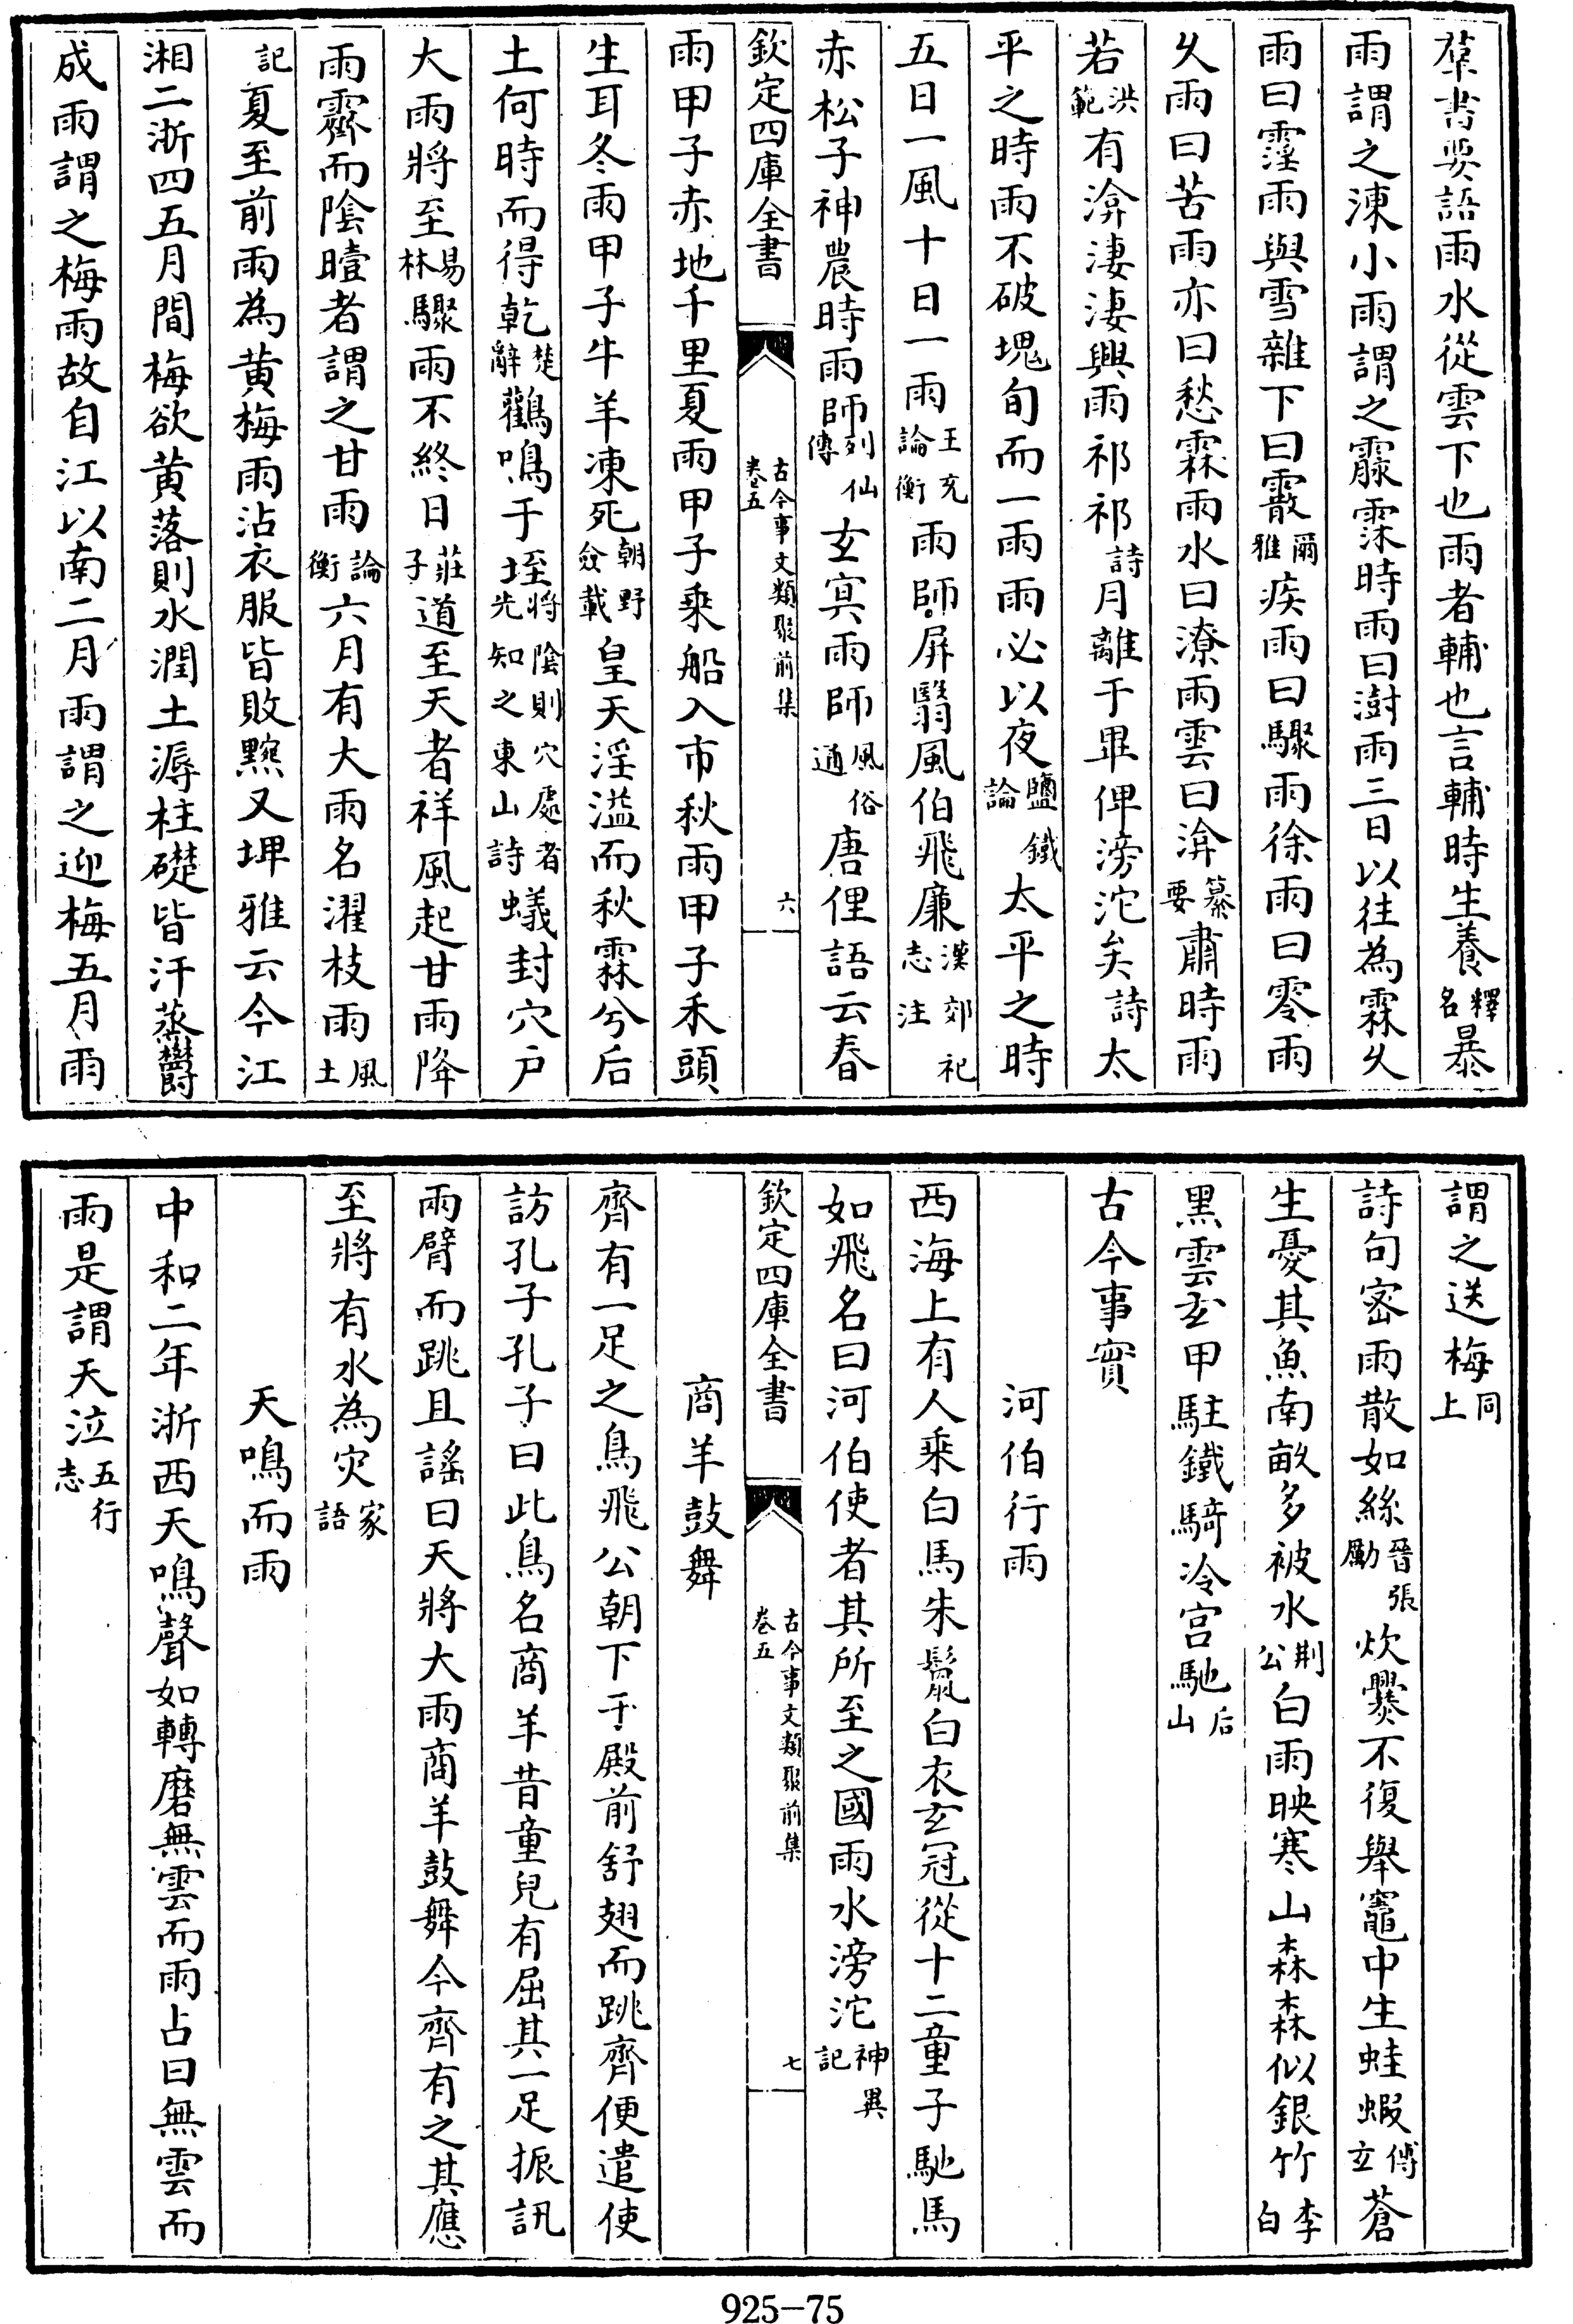 羣書要語雨水從雲下也雨者輔也言輔時生養釋名暴
雨謂之涷小雨謂之霡霂時雨曰澍雨三日以往為霖久
雨曰霪雨與雪雜下曰霰爾雅疾雨曰驟雨徐雨曰零雨
久雨曰苦雨亦曰愁霖雨水曰潦雨雲曰渰纂要肅時雨
若洪範有渰淒淒興雨祁祁詩月離于畢俾滂沱矣詩太
平之時雨不破塊旬而一雨雨必以夜鹽鐵論太平之時
五日一風十日一雨王充論衡雨師屏翳風伯飛廉漢郊祀志注
赤松子神農時雨師列仙傳玄㝠雨師風俗通唐俚語云春
欽定四庫全書 古今事文類聚前集 卷五 六
雨甲子赤地千里夏雨甲子乘船入市秋雨甲子禾頭
生耳冬雨甲子牛羊凍死朝野僉載皇天淫溢而秋霖兮后
土何時而得乾楚辭鸛鳴于垤將陰則穴處者先知之東山詩蟻封穴户
大雨將至易林驟雨不終日莊子道至天者祥風起甘雨降
雨霽而陰曀者謂之甘雨論衡六月有大雨名濯枝雨風土
記夏至前雨為黄梅雨沾衣服皆敗黦又埤雅云今江
湘二浙四五月間梅欲黄落則水潤土溽柱礎皆汗蒸鬱
成雨謂之梅雨故自江以南二月雨謂之迎梅五月雨
謂之送梅同上
詩句密雨散如絲晉張勵炊爨不復舉竈中生蛙蝦傅玄蒼
生憂其魚南畝多被水荆公白雨映寒山森森似銀竹李白
黑雲玄甲駐鐵騎冷宫馳后山
古今事實
河伯行雨
西海上有人乘白馬朱鬛白衣玄冠從十二童子馳馬
如飛名曰河伯使者其所至之國雨水滂沱神異記
欽定四庫全書 古今事文類聚前集 卷五 七
商羊鼓舞
齊有一足之鳥飛公朝下于殿前舒翅而跳齊便遣使
訪孔子孔子曰此鳥名商羊昔童兒有屈其一足振訊
兩臂而跳且謡曰天將大雨商羊鼓舞今齊有之其應
至將有水為灾家語
天鳴而雨
中和二年浙西天鳴聲如轉磨無雲而雨占曰無雲而
雨是謂天泣五行志
925-75